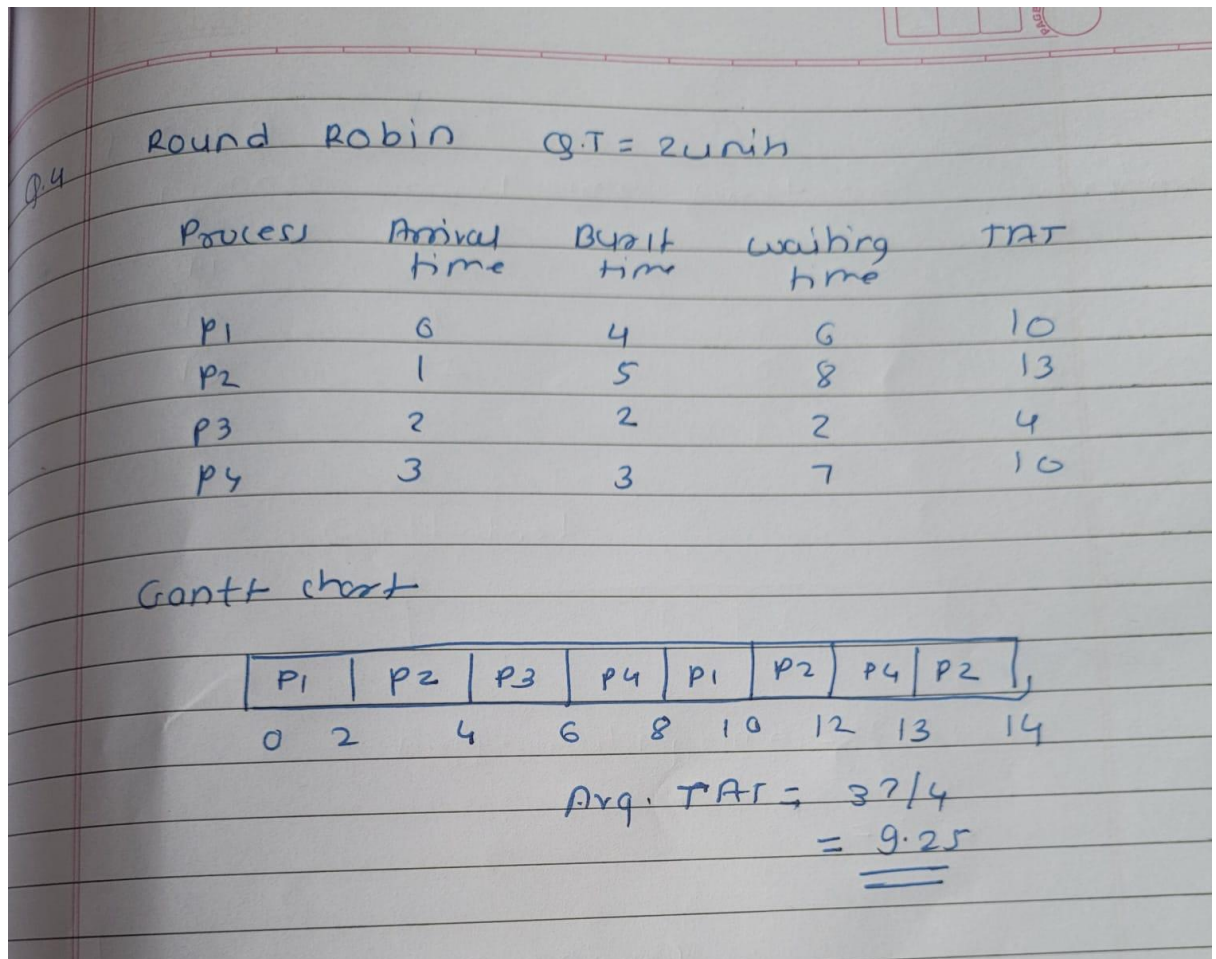 PAGE
Round Robin Q.T = 2 unit
Q.4
Process Arrival time Burst time waiting time TAT
P1 0 4 6 10
P2 1 5 8 13
P3 2 2 2 4
P4 3 3 7 10
Gantt chart
P1 P2 P3 P4 P1 P2 P4 P2
0 2 4 6 8 10 12 13 14
Avg. TAT = 37/4
= 9.25